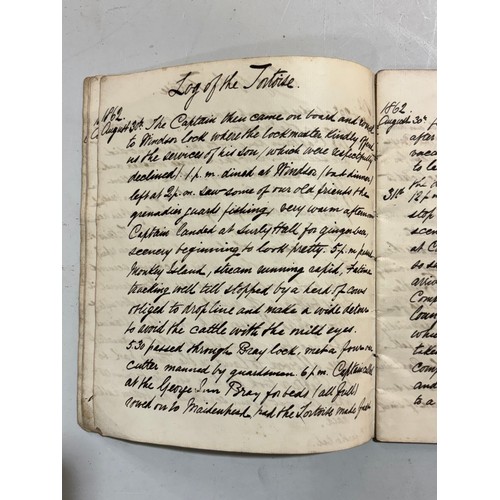 Log of the Tortoise.
1862
August 30th The Captain then came on board and
to Windsor lock where the lockmaster kindly offered
us the services of his son (which were respectfully
declined) 1 p.m. dined at Windsor (bad dinner)
left at 2 p.m. saw some of our old friends the
grenadier guards fishing, very warm afternoon
Captain landed at Surly Hall for gingerbeer,
scenery beginning to look pretty. 5 p.m. passed
Monkey Island, stream running rapid.
tracking well till stopped by a herd of cows
obliged to drop line and make a wide detour
to avoid the cattle with the mild eyes.
5.30 passed through Bray lock, met a four oar
cutter manned by guardsmen. 6 p.m. Captain called
at the George Inn Bray for beds (all full)
rowed on to Maidenhead, had the Tortoise made fast
1862
August 30th
after
vaca
to le
31st
12 p.m
stop
scen
at C
so d
arriv
Comp
loun
whic
taken
comp
and
to a